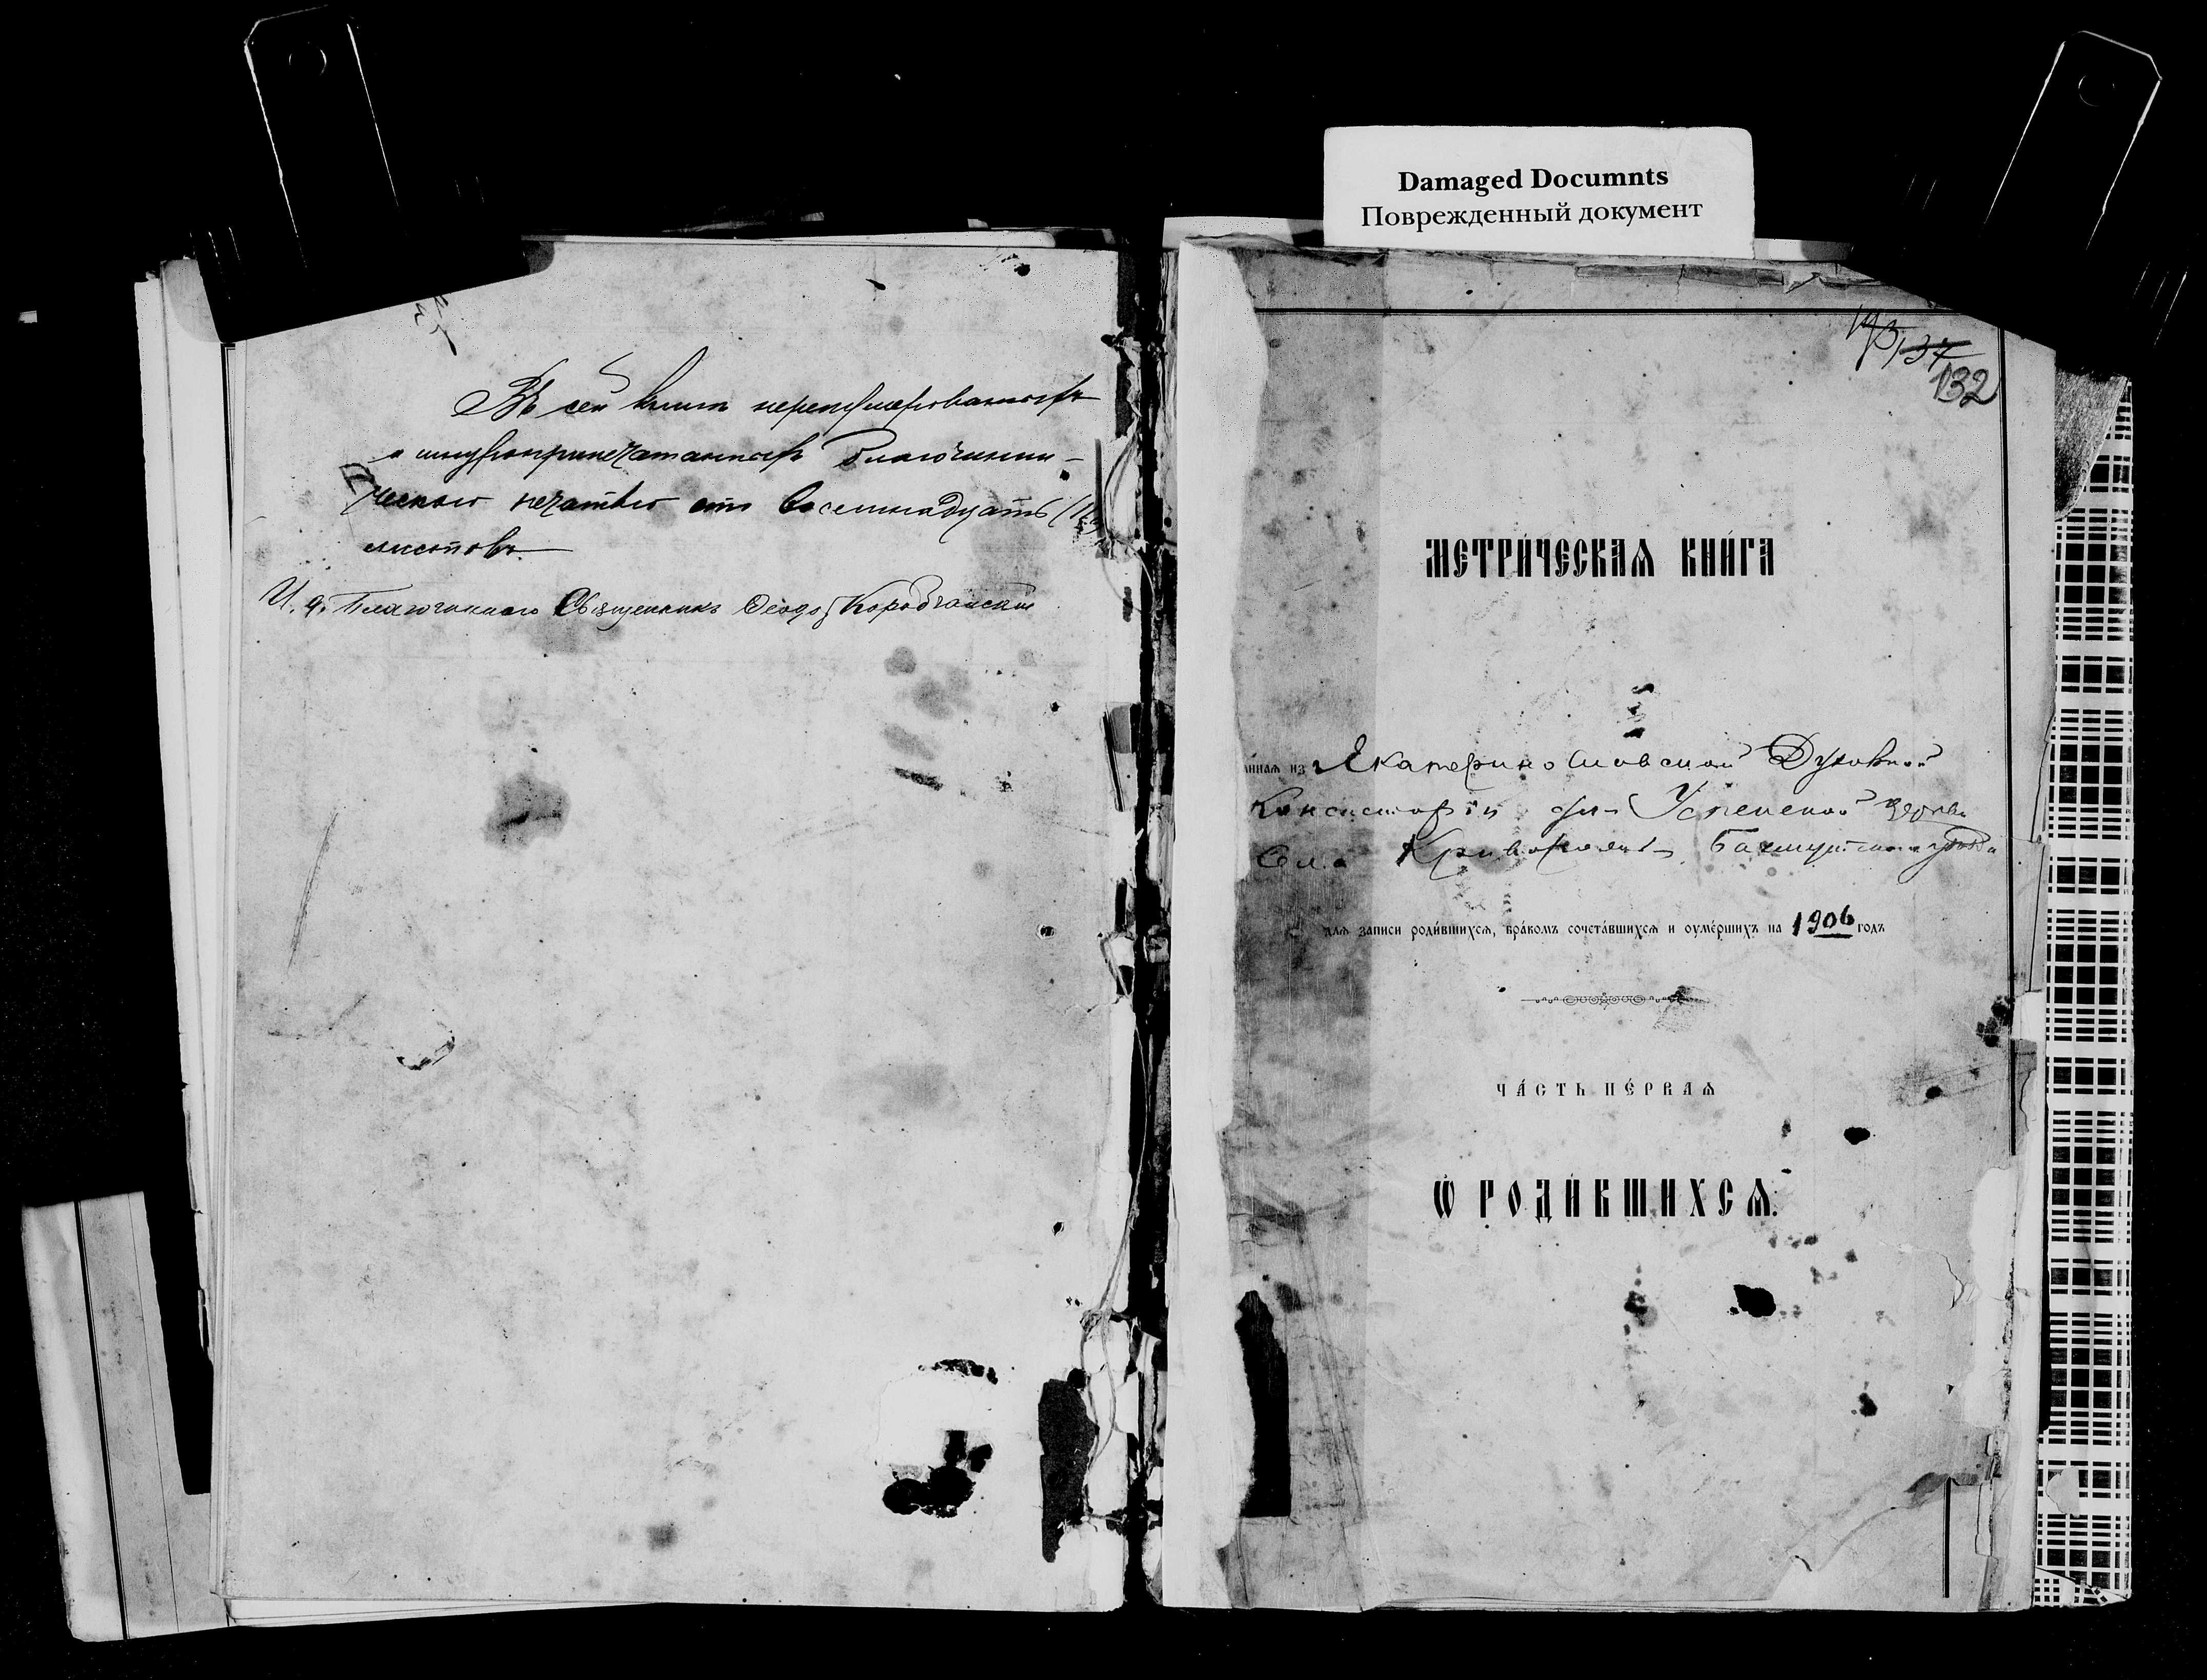 Damaged Documnts
Поврежденный документ
Въ сей книгѣ перенумерованныхъ
и шнуроприпечатанныхъ благочинни-
ческою печатью сто восемнадцать (118)
листовъ
И. д. Благочиннаго Священникъ Ѳеодоръ
193
137
132
МЕТРИ́ЧЕСКАѦ КНИ́ГА
из Екатеринославской Духовной
Консисторіи для Успенской церкви
Села Бахмутскаго уѣзда
длѧ записи роди́вшихсѧ, бра́комъ сочета́вшихсѧ и оуме́ршихъ на 1906 годъ
ЧА́СТЬ ПЕ́РВАѦ
Ѡ РОДИ́ВШИХСѦ.